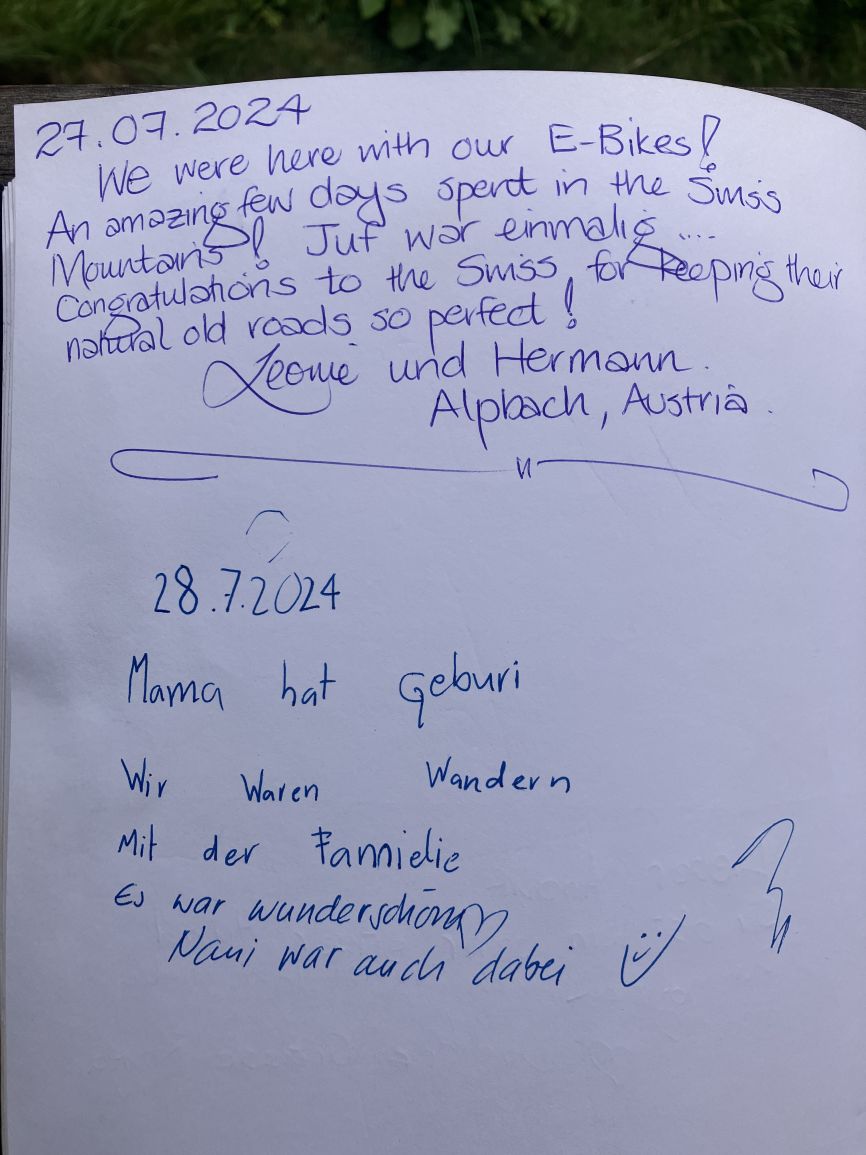 27.07.2024
We were here with our E-Bikes!
An amazing few days spent in the Swiss
Mountains! Juf war einmalig ....
Congratulations to the Swiss, for keeping their
natural old roads so perfect!
Leonie und Hermann.
Alpbach, Austria.
28.7.2024
Mama hat Geburi
Wir waren Wandern
Mit der Famielie
Es war wunderschön
Nani war auch dabei